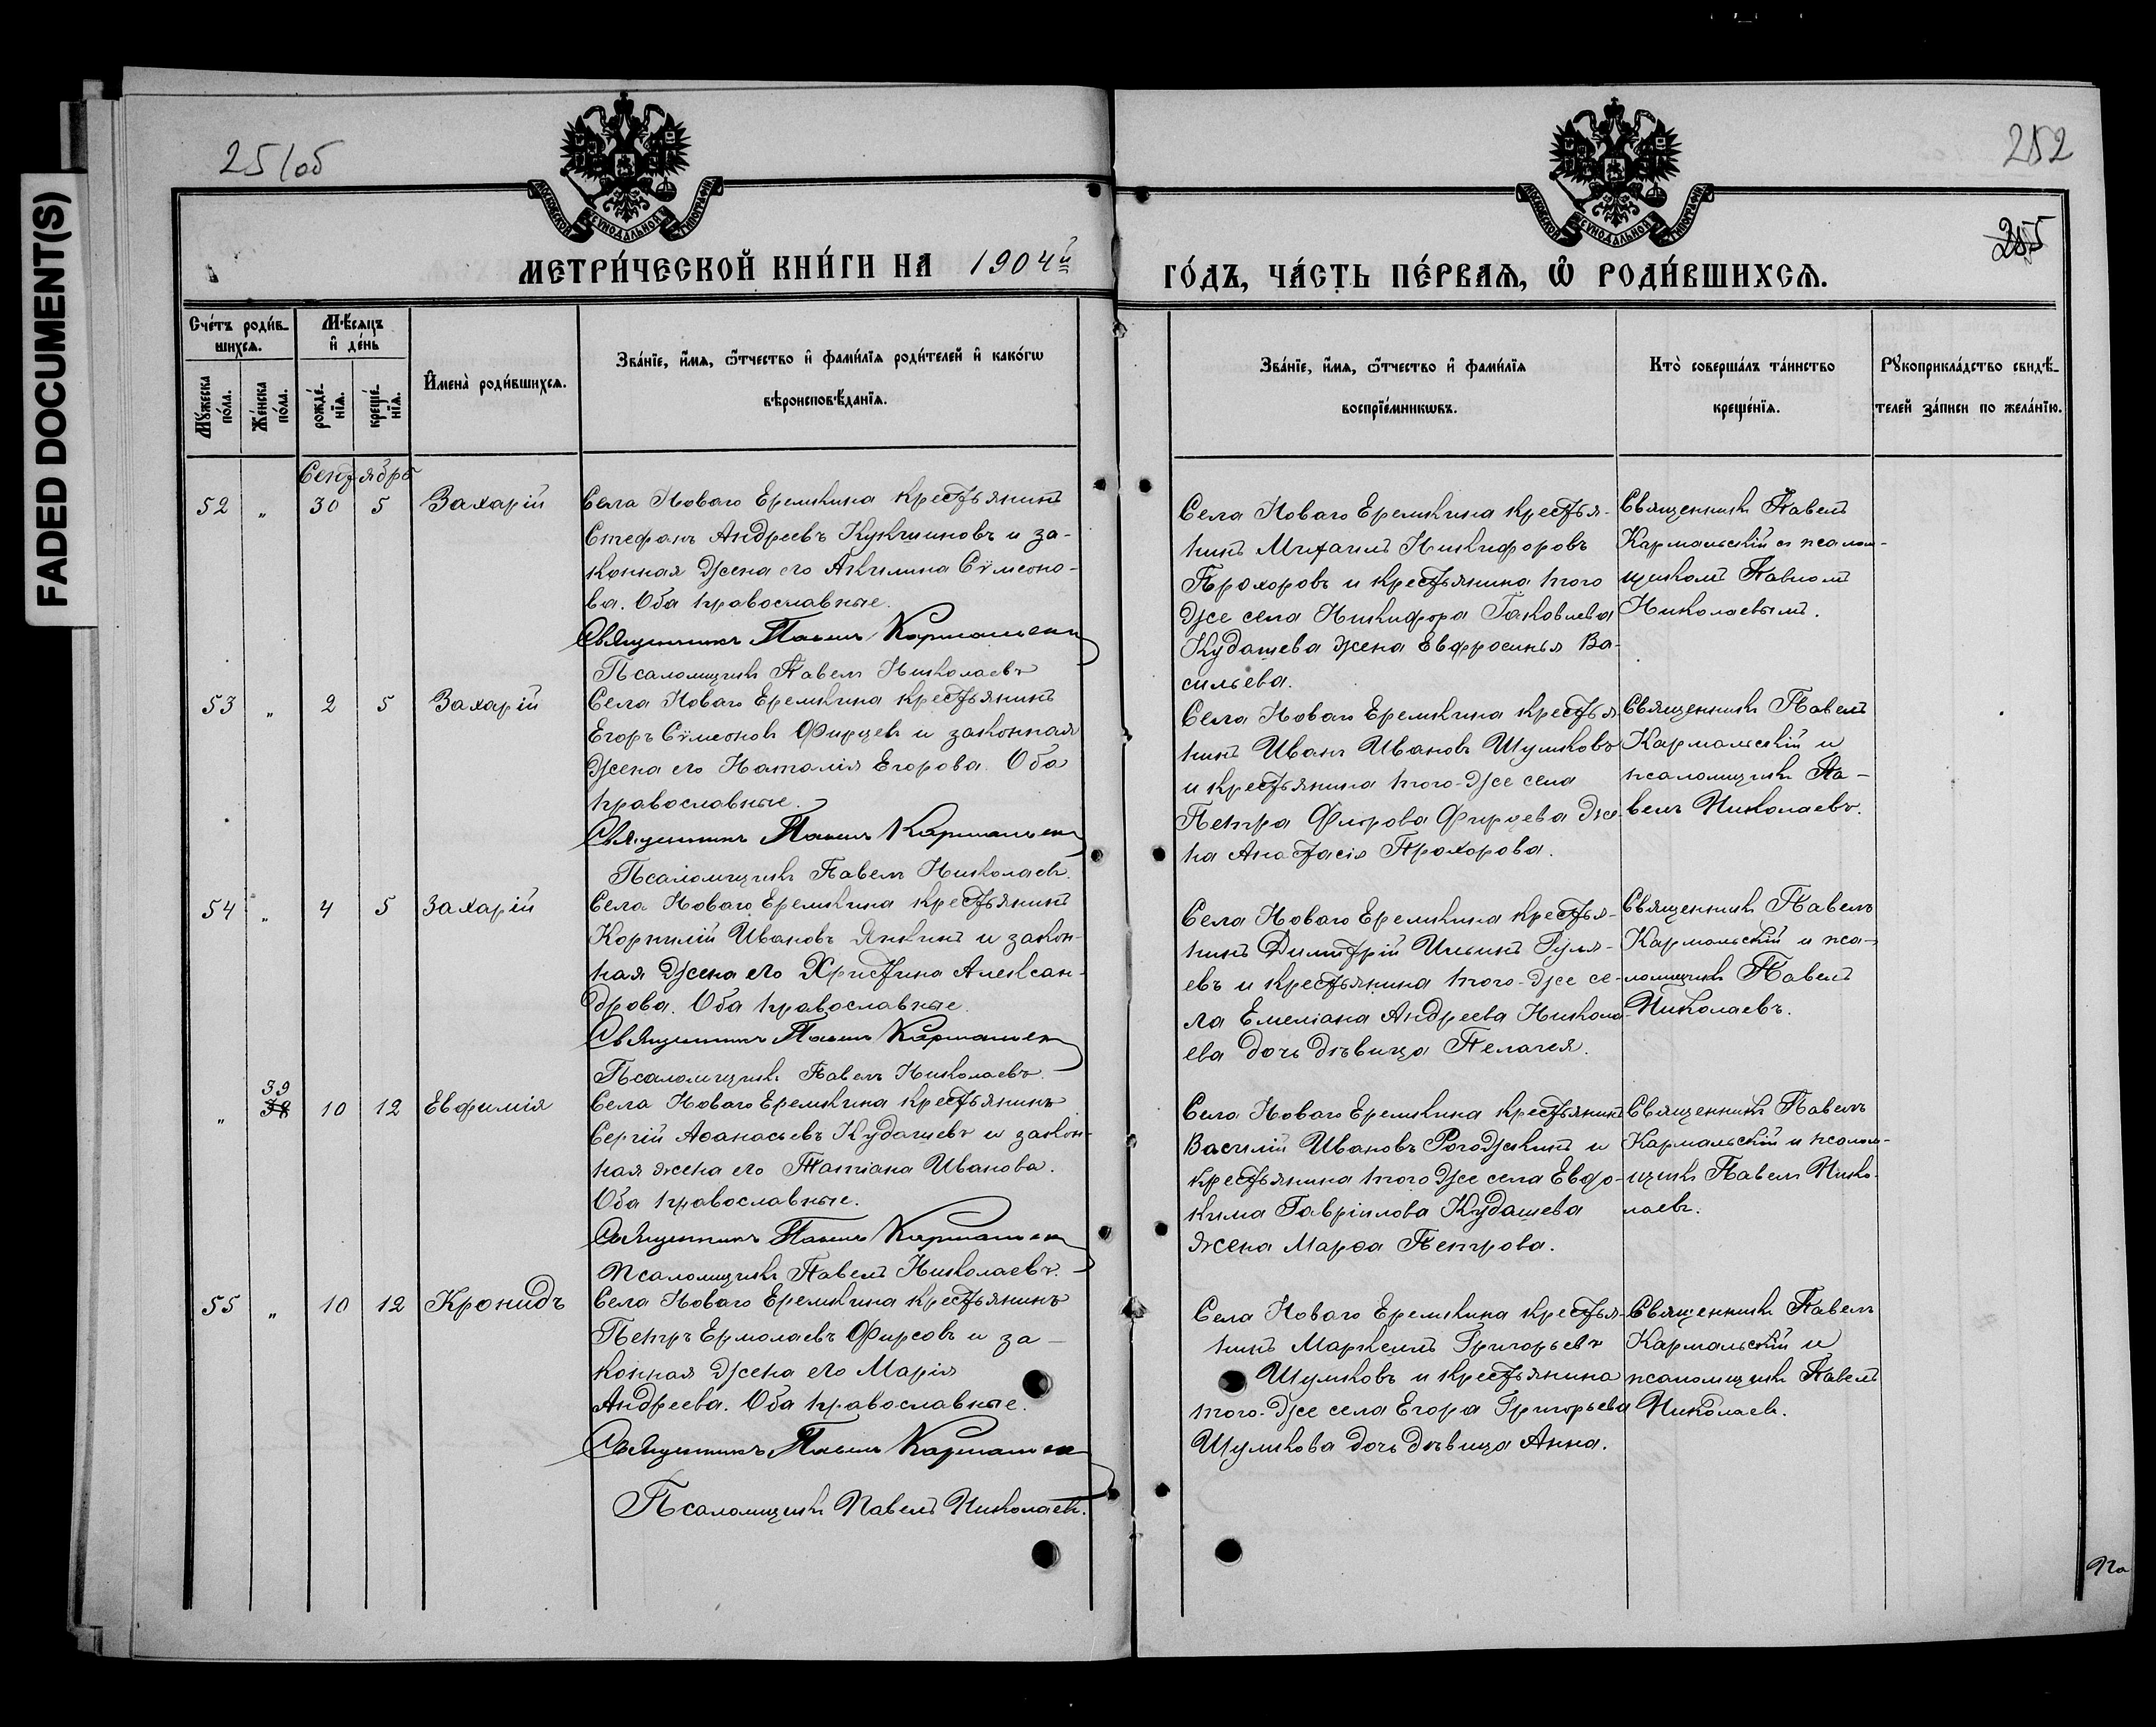 FADED DOCUMENT(S)
251об
252
205
МОСКОВСКОЙ СѴНОДАЛЬНОЙ ТИПОГРАФІИ
МОСКОВСКОЙ СѴНОДАЛЬНОЙ ТИПОГРАФІИ
МЕТРИ́ЧЕСКОЙ КНИ́ГИ НА 1904й
ГО́ДЪ, ЧА́СТЬ ПЕ́РВАЯ, Ѽ РОДИ́ВШИХСЯ.
Счетъ родив-
шихся.
Мѣсяцъ
и день
Мужеска
пола.
Женска
пола.
рожде-
нія.
креще-
нія.
Имена родившихся.
Званіе, имя, отчество и фамилія родителей и какогѡ
вѣроисповѣданія.
Званіе, имя, отчество и фамилія
воспріемникѡвъ.
Кто совершалъ таинство
крещенія.
Рукоприкладство свидѣ-
телей записи по желанію.
Сентябрь
52 „ 30 5 Захарій
Села Новаго Еремкина крестьянинъ
Стефанъ Андреевъ Кукшиновъ и за-
конная жена его Акилина Сѵмеоно-
ва. Оба православные.
Священникъ Павелъ Кармальскій
Псаломщикъ Павелъ Николаевъ
Села Новаго Еремкина крестья-
нинъ Михаилъ Никифоровъ
Прохоровъ и крестьянина того
же села Никифора Іаковлева
Кудашева жена Евфросинья Ва-
сильева.
Священникъ Павелъ
Кармальскій съ псалом-
щикомъ Павломъ
Николаевымъ.
53 „ 2 5 Захарій
Села Новаго Еремкина крестьянинъ
Егоръ Сѵмеоновъ Фирцевъ и законная
жена его Наталія Егорова. Оба
православные.
Священникъ Павелъ Кармальскій
Псаломщикъ Павелъ Николаевъ.
Села Новаго Еремкина крестья-
нинъ Иванъ Ивановъ Шумковъ
и крестьянина того-же села
Петра Флорова Фирцева же-
на Анастасія Прохорова.
Священникъ Павелъ
Кармальскій и
псаломщикъ Па-
велъ Николаевъ.
54 „ 4 5 Захарій
Села Новаго Еремкина крестьянинъ
Корнилій Ивановъ Янкинъ и закон-
ная жена его Христина Алексан-
дрова. Оба православные.
Священникъ Павелъ Кармальскій
Псаломщикъ Павелъ Николаевъ.
Села Новаго Еремкина крестья-
нинъ Димитрій Ильинъ Гуля-
евъ и крестьянина того-же се-
ла Емеліана Андреева Никола-
ева дочь дѣвица Пелагея.
Священникъ Павелъ
Кармальскій и пса-
ломщикъ Павелъ
Николаевъ.
39
„ 38 10 12 Евфимія
Села Новаго Еремкина крестьянинъ
Сергій Аѳанасьевъ Кудашевъ и закон-
ная жена его Татіана Иванова.
Оба православные.
Священникъ Павелъ Кармальскій
Псаломщикъ Павелъ Николаевъ.
Села Новаго Еремкина крестьянинъ
Василій Ивановъ Рогожкинъ и
крестьянина того же села Евдо-
кима Гавріилова Кудашева
жена Марѳа Петрова.
Священникъ Павелъ
Кармальскій и псалом-
щикъ Павелъ Нико-
лаевъ.
55 „ 10 12 Кронидъ
Села Новаго Еремкина крестьянинъ
Петръ Ермолаевъ Фирсовъ и за-
конная жена его Марія
Андреева. Оба православные.
Священникъ Павелъ Кармальскій
Псаломщикъ Павелъ Николаевъ.
Села Новаго Еремкина крестья-
нинъ Маркеллъ Григорьевъ
Шумковъ и крестьянина
того-же села Егора Григорьева
Шумкова дочь дѣвица Анна.
Священникъ Павелъ
Кармальскій и
псаломщикъ Павелъ
Николаевъ.
По